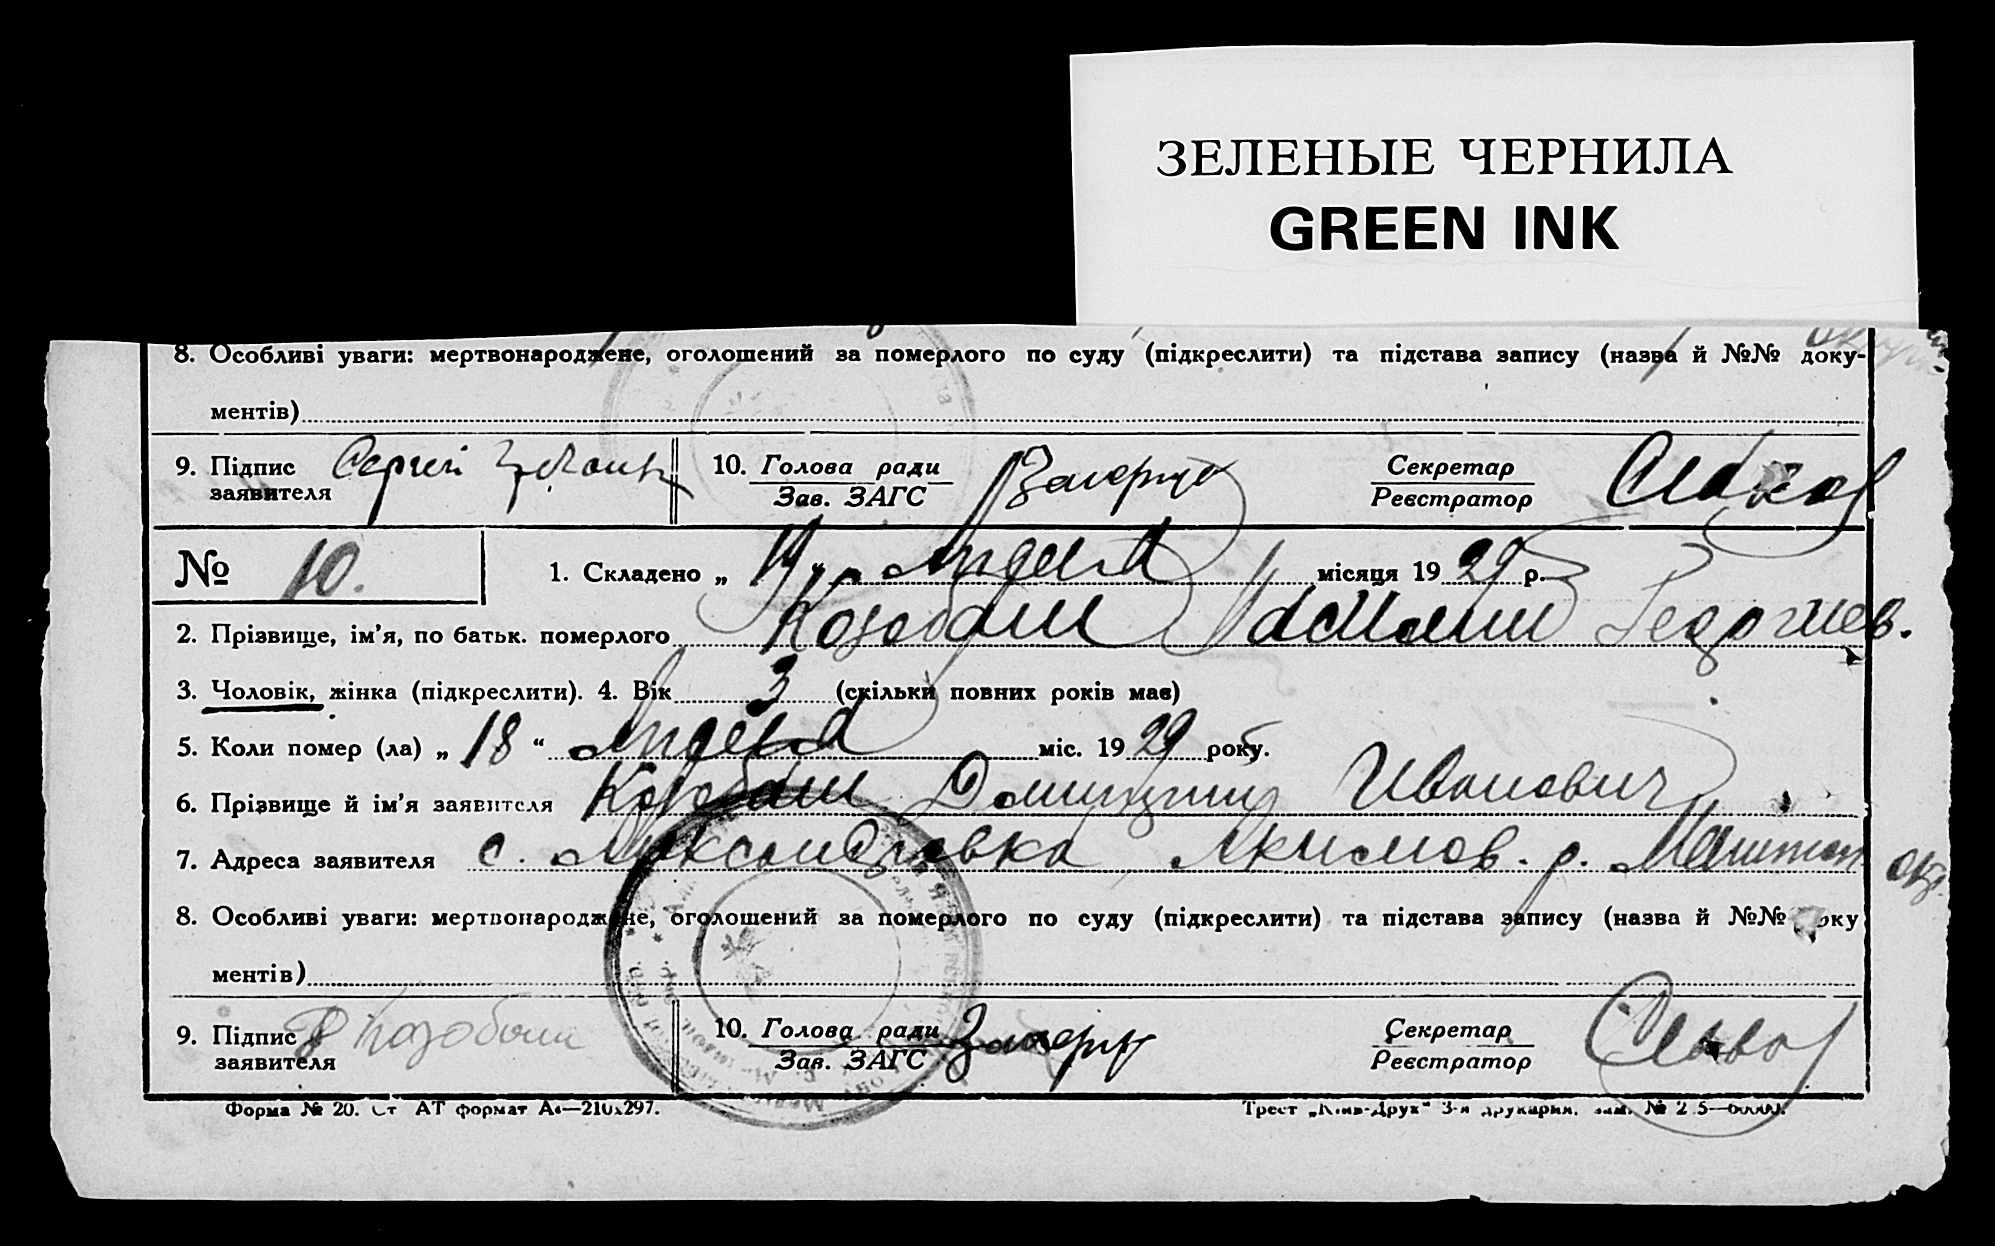 ЗЕЛЕНЫЕ ЧЕРНИЛА
GREEN INK
8. Особливі уваги: мертвонароджене, оголошений за померлого по суду (підкреслити) та підстава запису (назва й №№ доку-
ментів)
9. Підпис заявителя Сергій 10. Голова ради Зав. ЗАГС Секретар Реєстратор
№ 10. 1. Складено „ 19 “ Апреля місяця 1929 р.
2. Прізвище, ім’я, по батьк. померлого Козобаш Василий Георгиев.
3. Чоловік, жінка (підкреслити). 4. Вік 3 (скільки повних років мав)
5. Коли помер (ла) „ 18 “ Апреля міс. 1929 року.
6. Прізвище й ім’я заявителя Козобаш Иванович
7. Адреса заявителя с. Александровка Акимов. р. Мелитоп. окр.
8. Особливі уваги: мертвонароджене, оголошений за померлого по суду (підкреслити) та підстава запису (назва й №№ доку
ментів)
9. Підпис заявителя Козобаш 10. Голова ради Зав. ЗАГС Секретар Реєстратор
Форма № 20. Ст АТ формат А4—210х297. Трест „Київ-Друк“ 3-я друкарня.